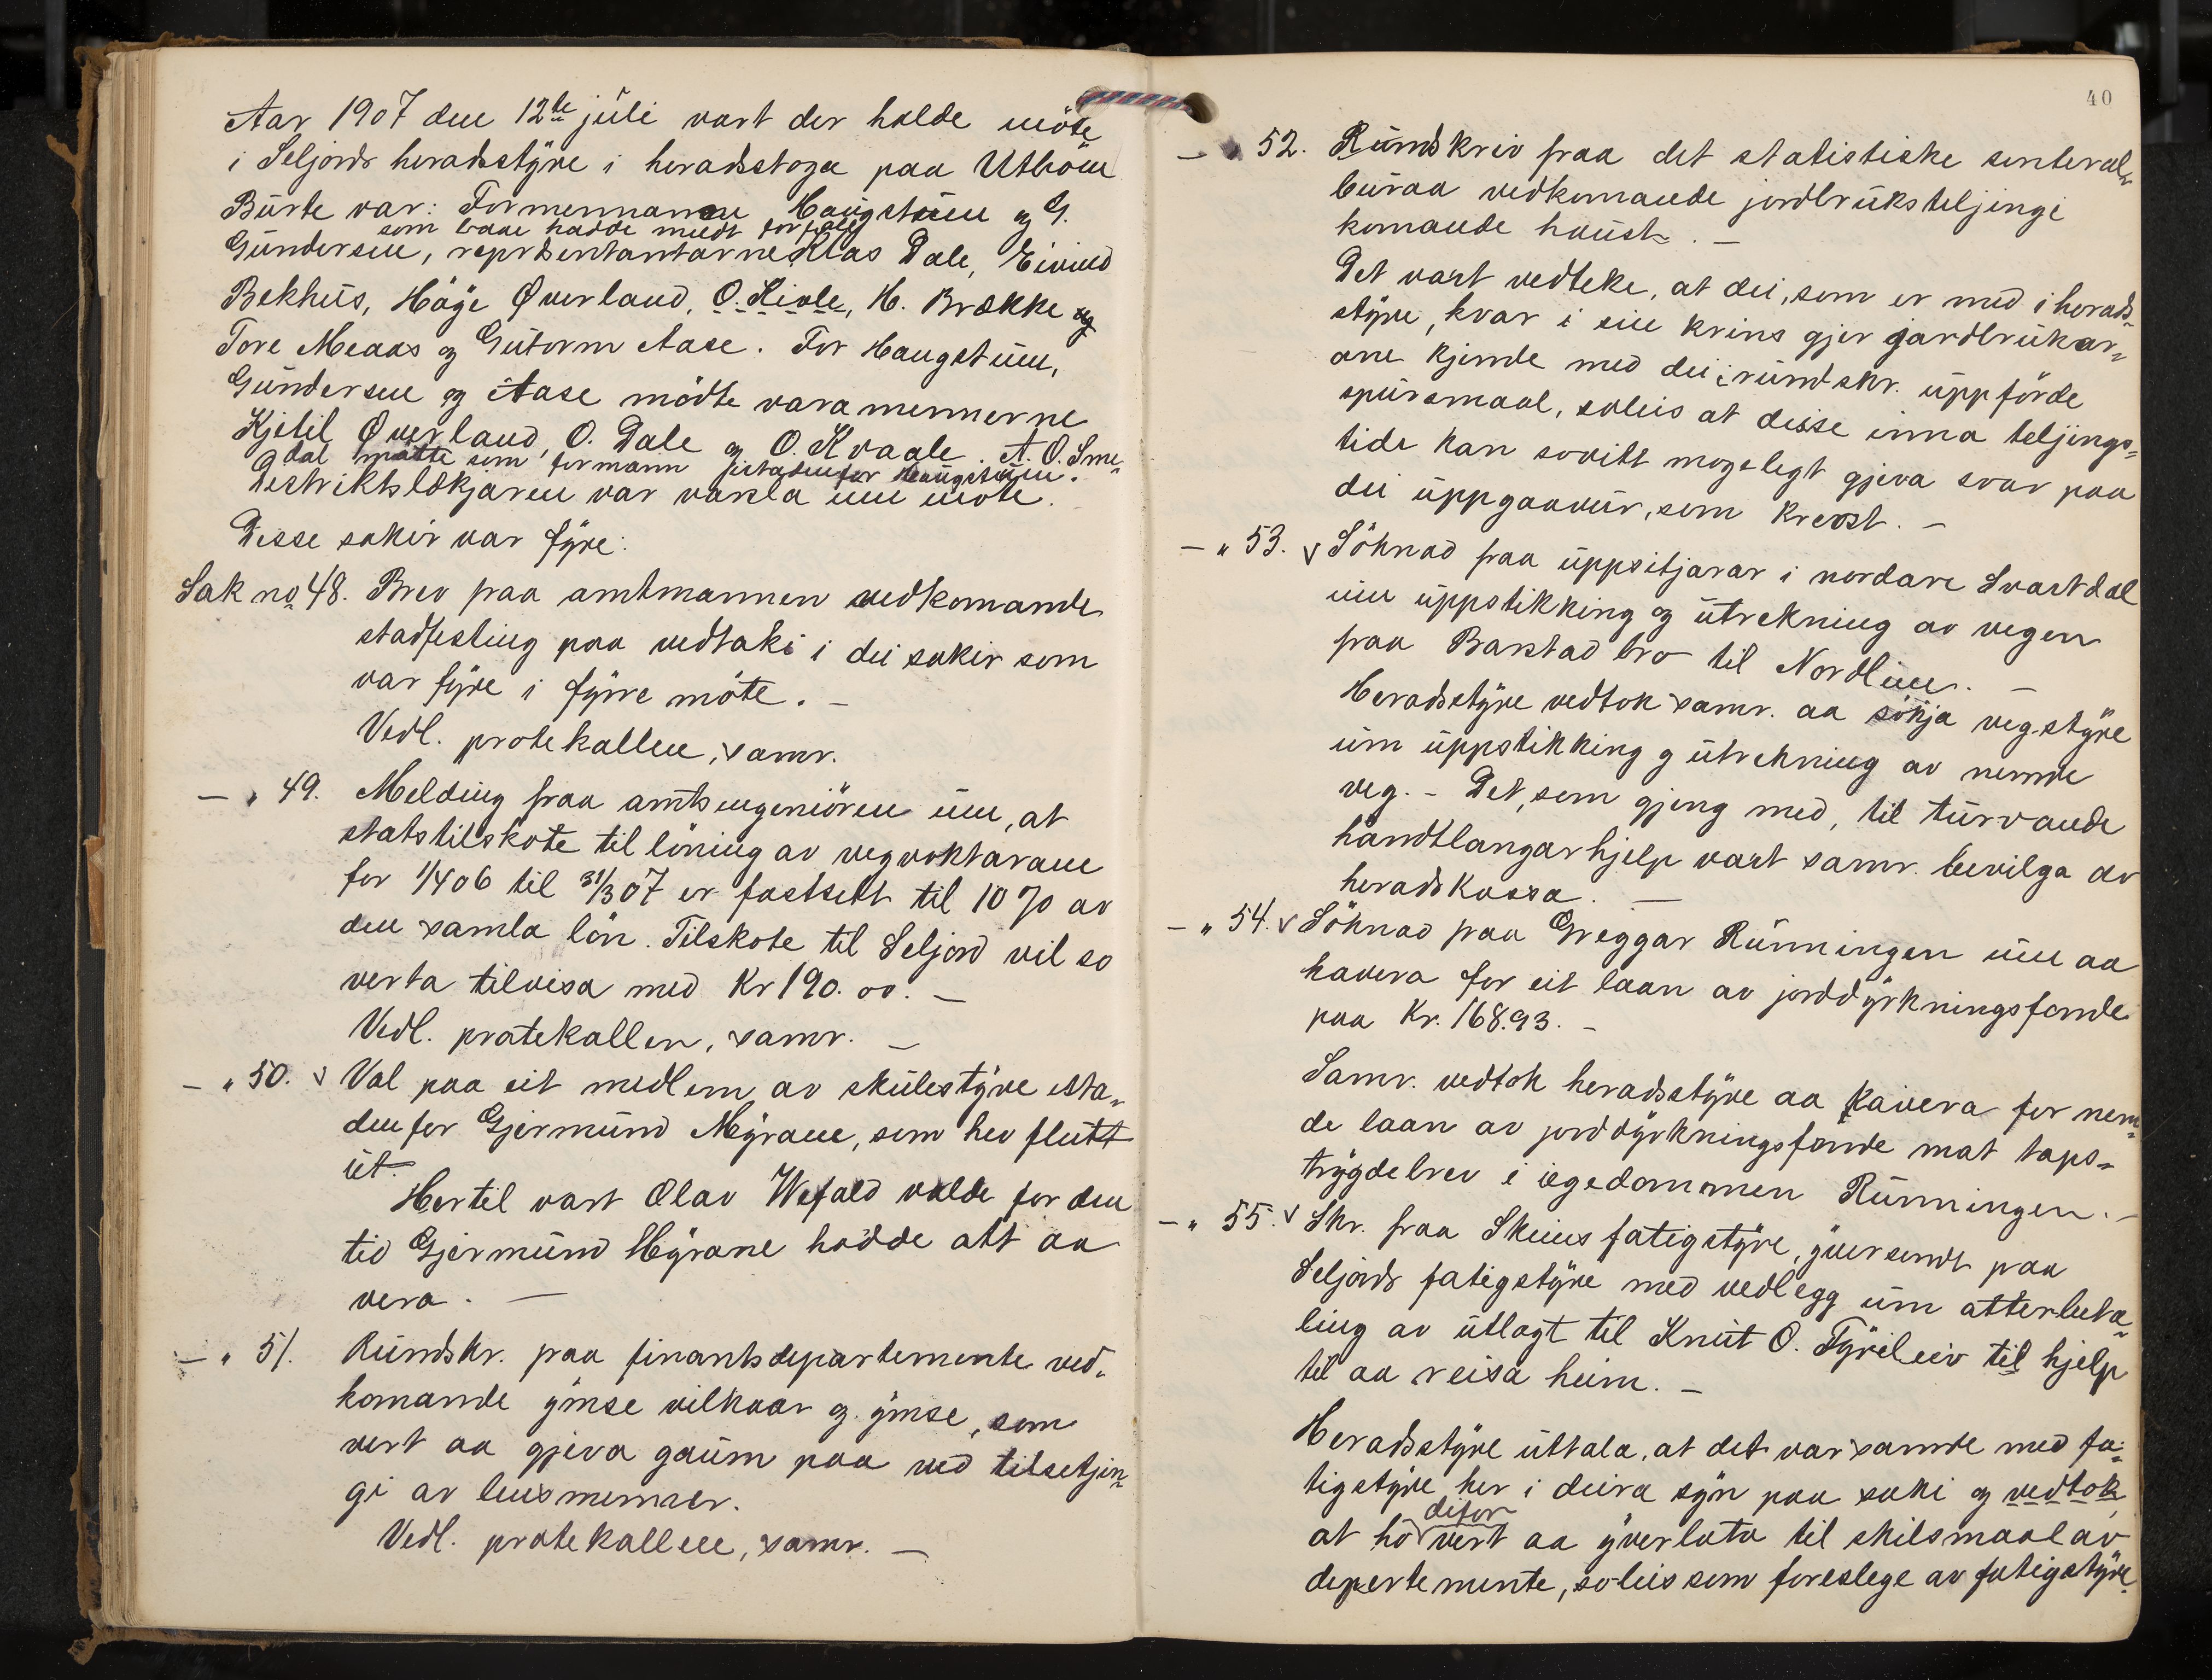 Aar 1907 den 12te juli vart der halde möte
i Seljords heradsstyre i heradsstoga paa Utbøen
Burte var: Formennanne Haugstuen og G.
som baae hadde meldt forfall
Gundersen, repræsentantarne Klas Dale, Eivind
Bekhus, Höje Øverland, O. Kivle, H. Brække og
Tore Meaas og Gutorm Aase. For Haugstuen,
Gundersen og Aase mödte varamennerne
Kjetil Øverland, O. Dale og O. Kvaale. A. O. Sme-
dal mötte som formann istadenfor Haugstuen.
Destriktslækjaren var varsla um möte.
Disse sakir var fyre:
Sak no 48. Brev fraa amtmannen vedkomande
stadfesting paa vedtaki i dei sakir som
var fyre i fyrre möte. –
Vedl. protekallen, samr.
– " 49. Melding fraa amtsingeniören um, at
statstilskote til löning av vegvoktarane
for 1/4 06 til 31/3 07 er fastsett til 10 % av
den samla lön. Tilskote til Seljord vil so
verta tilvisa med Kr 190.00. –
Vedl. protekallen, samr. –
– " 50. v Val paa eit medlem av skulestyre ista-
denfor Gjermund Myrane, som hev flutt
ut.
Hertil vart Olav Wefald valde for den
tid Gjermund Myrane hadde att aa
vera. –
– " 51. Rundskr. fraa finantsdepartemente ved-
komande ymse vilkaar og ymse, som
vert aa gjeva gaum paa ved tilsetjin-
gi av lensmenner.
Vedl. protekallen, samr. –
40
– " 52. Rundskriv fraa det statistiske senteral-
buraa vedkomande jordbruksteljingi
komande haust. –
Det vart vedteke, at dei, som er med i herads-
styre, kvar i sin krins gjer jardbrukar-
ane kjende med dei i rundskr. uppförde
spursmaal, soleis at disse inna teljings-
tidi kan sovitt mogelegt gjeva svar paa
dei uppgaavur, som krevst. –
– " 53. v Söknad fraa uppsitjarar i nordare Svartdal
um uppstikking og utrekning av vegen
fraa Barstad bro til Nordlien. –
Heradsstyre vedtok samr. aa sökja vegstyre
um uppstikking og utrekning av nemde
veg. – Det, som gjeng med, til turvande
handtlangarhjelp vart samr. bevilga av
heradskassa. –
– " 54. v Söknad fraa Greggar Rünningen um aa
kavera for eit laan av jorddyrkningsfonde
paa Kr. 168.93. –
Samr. vedtok heradsstyre aa kavera for nem-
de laan av jorddyrkningsfonde mot taps-
trygdebrev i eigedommen Rünningen. –
– " 55. v Skr. fraa Skiens fatigstyre, yversendt fraa
Seljords fatigstyre med vedlegg um atterbeta-
ling av utlagt til Knut O. Tyrileiv til hjelp
til aa reisa heim. –
Heradsstyre uttala, at det var samde med fa-
tigstyre her i deira syn paa saki og vedtok,
difor
at hö vert aa yverlata til skilsmaal av
departemente, soleis som foreslege av fatigstyre.